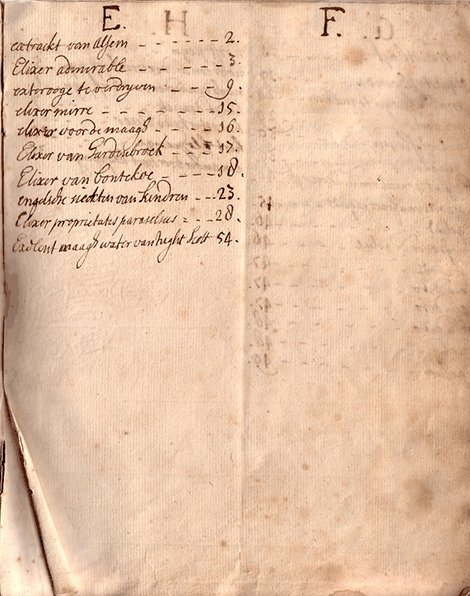 E.
extrackt van Alsem - - - - - - 2.
Elixer admirable - - - - - - 3.
exterooge te verdryven - - - - 9.
elixer mirre - - - - - - - - 15.
elixer voor de maagd - - - - - 16.
Elixer van Gardenbroek - - - - 17.
Elixer van bontekoe - - - - 18.
engelsche siechten van kindren - - - 23.
Elixer proprietatis paraselsus - - - 28.
Exelent maagd water van 54.
F.